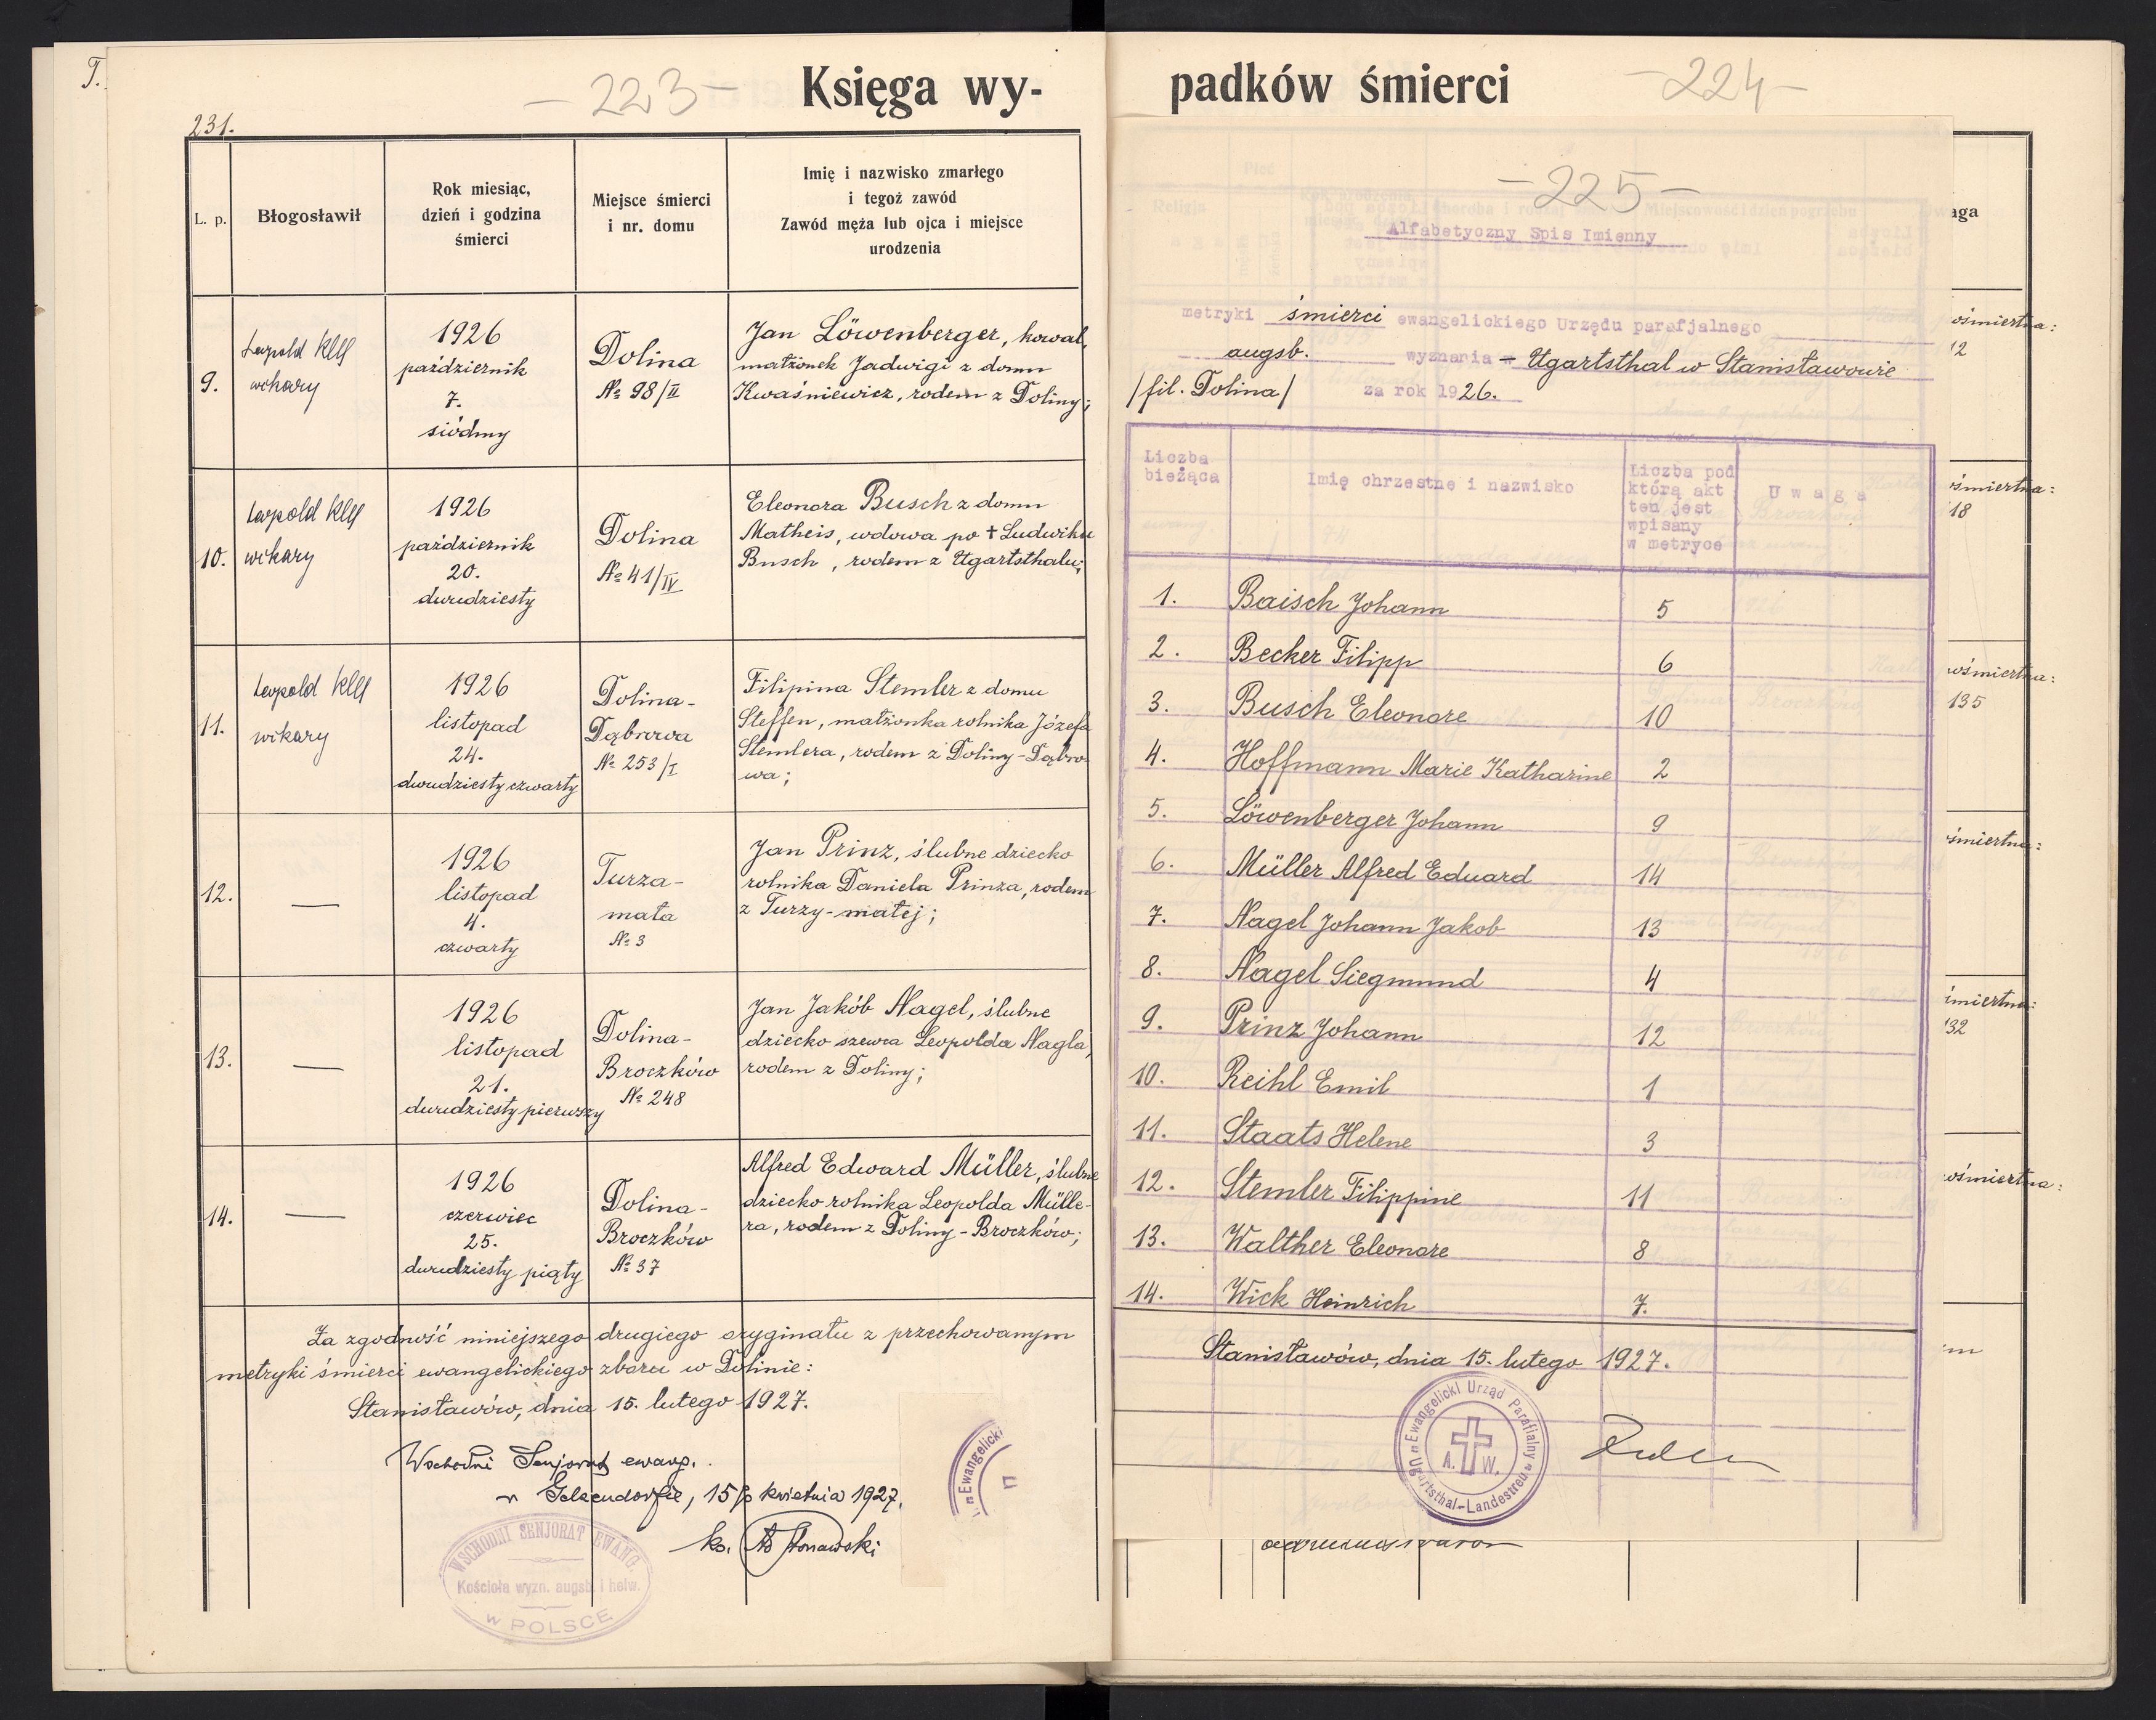 T.
Księga wy-
padków śmierci
- 223 -
- 224 -
231.
L. p.
Błogosławił
Rok miesiąc,
dzień i godzina
śmierci
Miejsce śmierci
i nr. domu
Imię i nazwisko zmarłego
i tegoż zawód
Zawód męża lub ojca i miejsce
urodzenia
9.
Leopold Kll
wikary
1926
październik
7.
siódmy
Dolina
№ 98/II
Jan Löwenberger, kowal,
małżonek Jadwigi z domu
Kwaśniewicz, rodem z Doliny;
10.
Leopold Kll
wikary
1926
październik
20.
dwudziesty
Dolina
№ 41/IV
Eleonora Busch z domu
Matheis, wdowa po † Ludwiku
Busch, rodem z Ugartsthalu;
11.
Leopold Kll
wikary
1926
listopad
24.
dwudziesty czwarty
Dolina-
Dąbrowa
№ 253/I
Filipina Stemler z domu
Steffen, małżonka rolnika Józefa
Stemlera, rodem z Doliny-Dąbro-
wa;
12.
—
1926
listopad
4.
czwarty
Turza-
mała
№ 3
Jan Prinz, ślubne dziecko
rolnika Daniela Prinza, rodem
z Turzy-małej;
13.
—
1926
listopad
21.
dwudziesty pierwszy
Dolina-
Broczków
№ 248
Jan Jakób Nagel, ślubne
dziecko szewca Leopolda Nagla,
rodem z Doliny;
14.
—
1926
czerwiec
25.
dwudziesty piąty
Dolina-
Broczków
№ 37
Alfred Edward Müller, ślubne
dziecko rolnika Leopolda Mülle-
ra, rodem z Doliny-Broczków;
Za zgodność niniejszego drugiego oryginału z przechowanym
metryki śmierci ewangelickiego zboru w Dolinie:
Stanisławów, dnia 15. lutego 1927.
Wschodni Senjorat ewang.
w Gelsendorfie, 15/ kwietnia 1927.
ks.
WSCHODNI SENJORAT EWANG.
Kościoła wyzn. augsb. i helw.
w POLSCE
Ewangelicki
- 225 -
Alfabetyczny Spis Imienny
metryki śmierci ewangelickiego Urzędu parafjalnego
augsb. wyznania - Ugartsthal w Stanisławowie
/fil. Dolina/ za rok 1926.
Liczba
bieżąca
Imię chrzestne i nazwisko
Liczba pod
którą akt
ten jest
wpisany
w metryce
Uwaga
1. Baisch Johann 5
2. Becker Filipp 6
3. Busch Eleonore 10
4. Hoffmann Marie Katharine 2
5. Löwenberger Johann 9
6. Müller Alfred Eduard 14
7. Nagel Johann Jakob 13
8. Nagel Siegmund 4
9. Prinz Johann 12
10. Reihl Emil 1
11. Staats Helene 3
12. Stemler Filippine 11
13. Walther Eleonore 8
14. Wick Heinrich 7.
Stanisławów, dnia 15. lutego 1927.
Ewangelicki Urząd Parafialny w Ugartsthal-Landestreu
A. W.
aga
ośmiertna:
12
śmiertna:
18
ośmiertna:
135
śmiertna:
śmiertna:
132
ośmiertna: